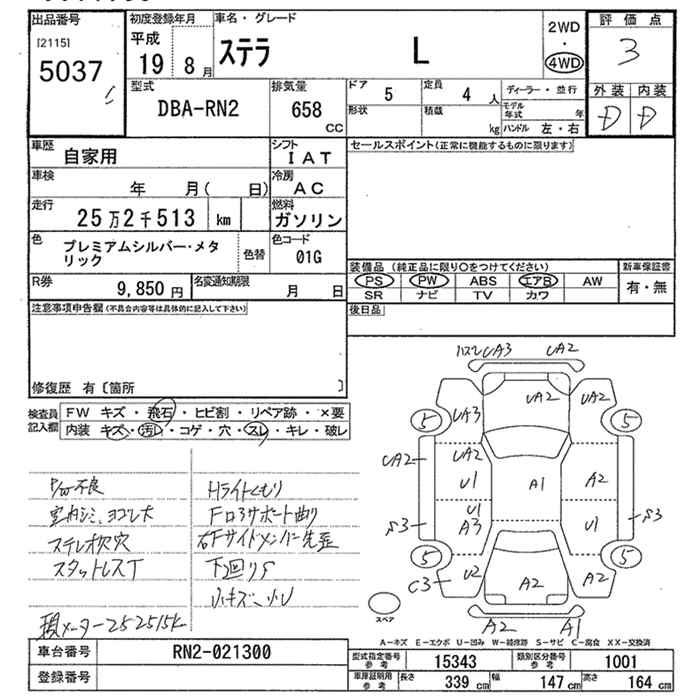 出品番号
[2115]
5037
初度登録年月
平成
19 8月
車名・グレード
ステラ L
2WD
・
4WD
評価点
3
外装 内装
D D
型式
DBA-RN2
排気量
658
CC
ドア 5
形状
定員 4 人
積載 kg
ディーラー・並行
モデル年式 年
ハンドル 左・右
車歴
自家用
シフト
IAT
車検
年 月( 日)
冷房
AC
走行
25万2千513 km
燃料
ガソリン
色
プレミアムシルバー・メタ
リック
色替
色コード
01G
R券
9,850 円
名変通知期限
月 日
セールスポイント(正常に機能するものに限ります)
装備品 (純正品に限り○をつけてください)
PS PW ABS エアB AW
SR ナビ TV カワ
新車保証書
有・無
後日品
注意事項申告欄(不具合内容等は具体的に記入して下さい)
修復歴 有〔箇所 〕
検査員
記入欄
FW キズ・飛石・ヒビ割・リペア跡・×要
内装 キズ・汚レ・コゲ・穴・スレ・キレ・破レ
P/W不良
室内シミ、ヨゴレ大
ステレオ欠穴
スタットレスT
現メーター252515K
Hライトくもり
Fロアサポート曲り
右Fサイドメンバー先歪
下廻りS
小キズ、小U
UA3 UA2
UA3
UA2
UA2
5
5
UA2
UA2
U1
A1
A2
U1
A3
U1
S3
S3
5
5
C3
U2
A2
A2
A2
A1
スペア
A−キズ E−エクボ U−凹み W−補修跡 S−サビ C−腐食 XX−交換済
車台番号
RN2-021300
登録番号
型式指定番号
参考
15343
類別区分番号
参考
1001
車庫証明用
参考
長さ 339 cm
幅 147 cm
高さ 164 cm